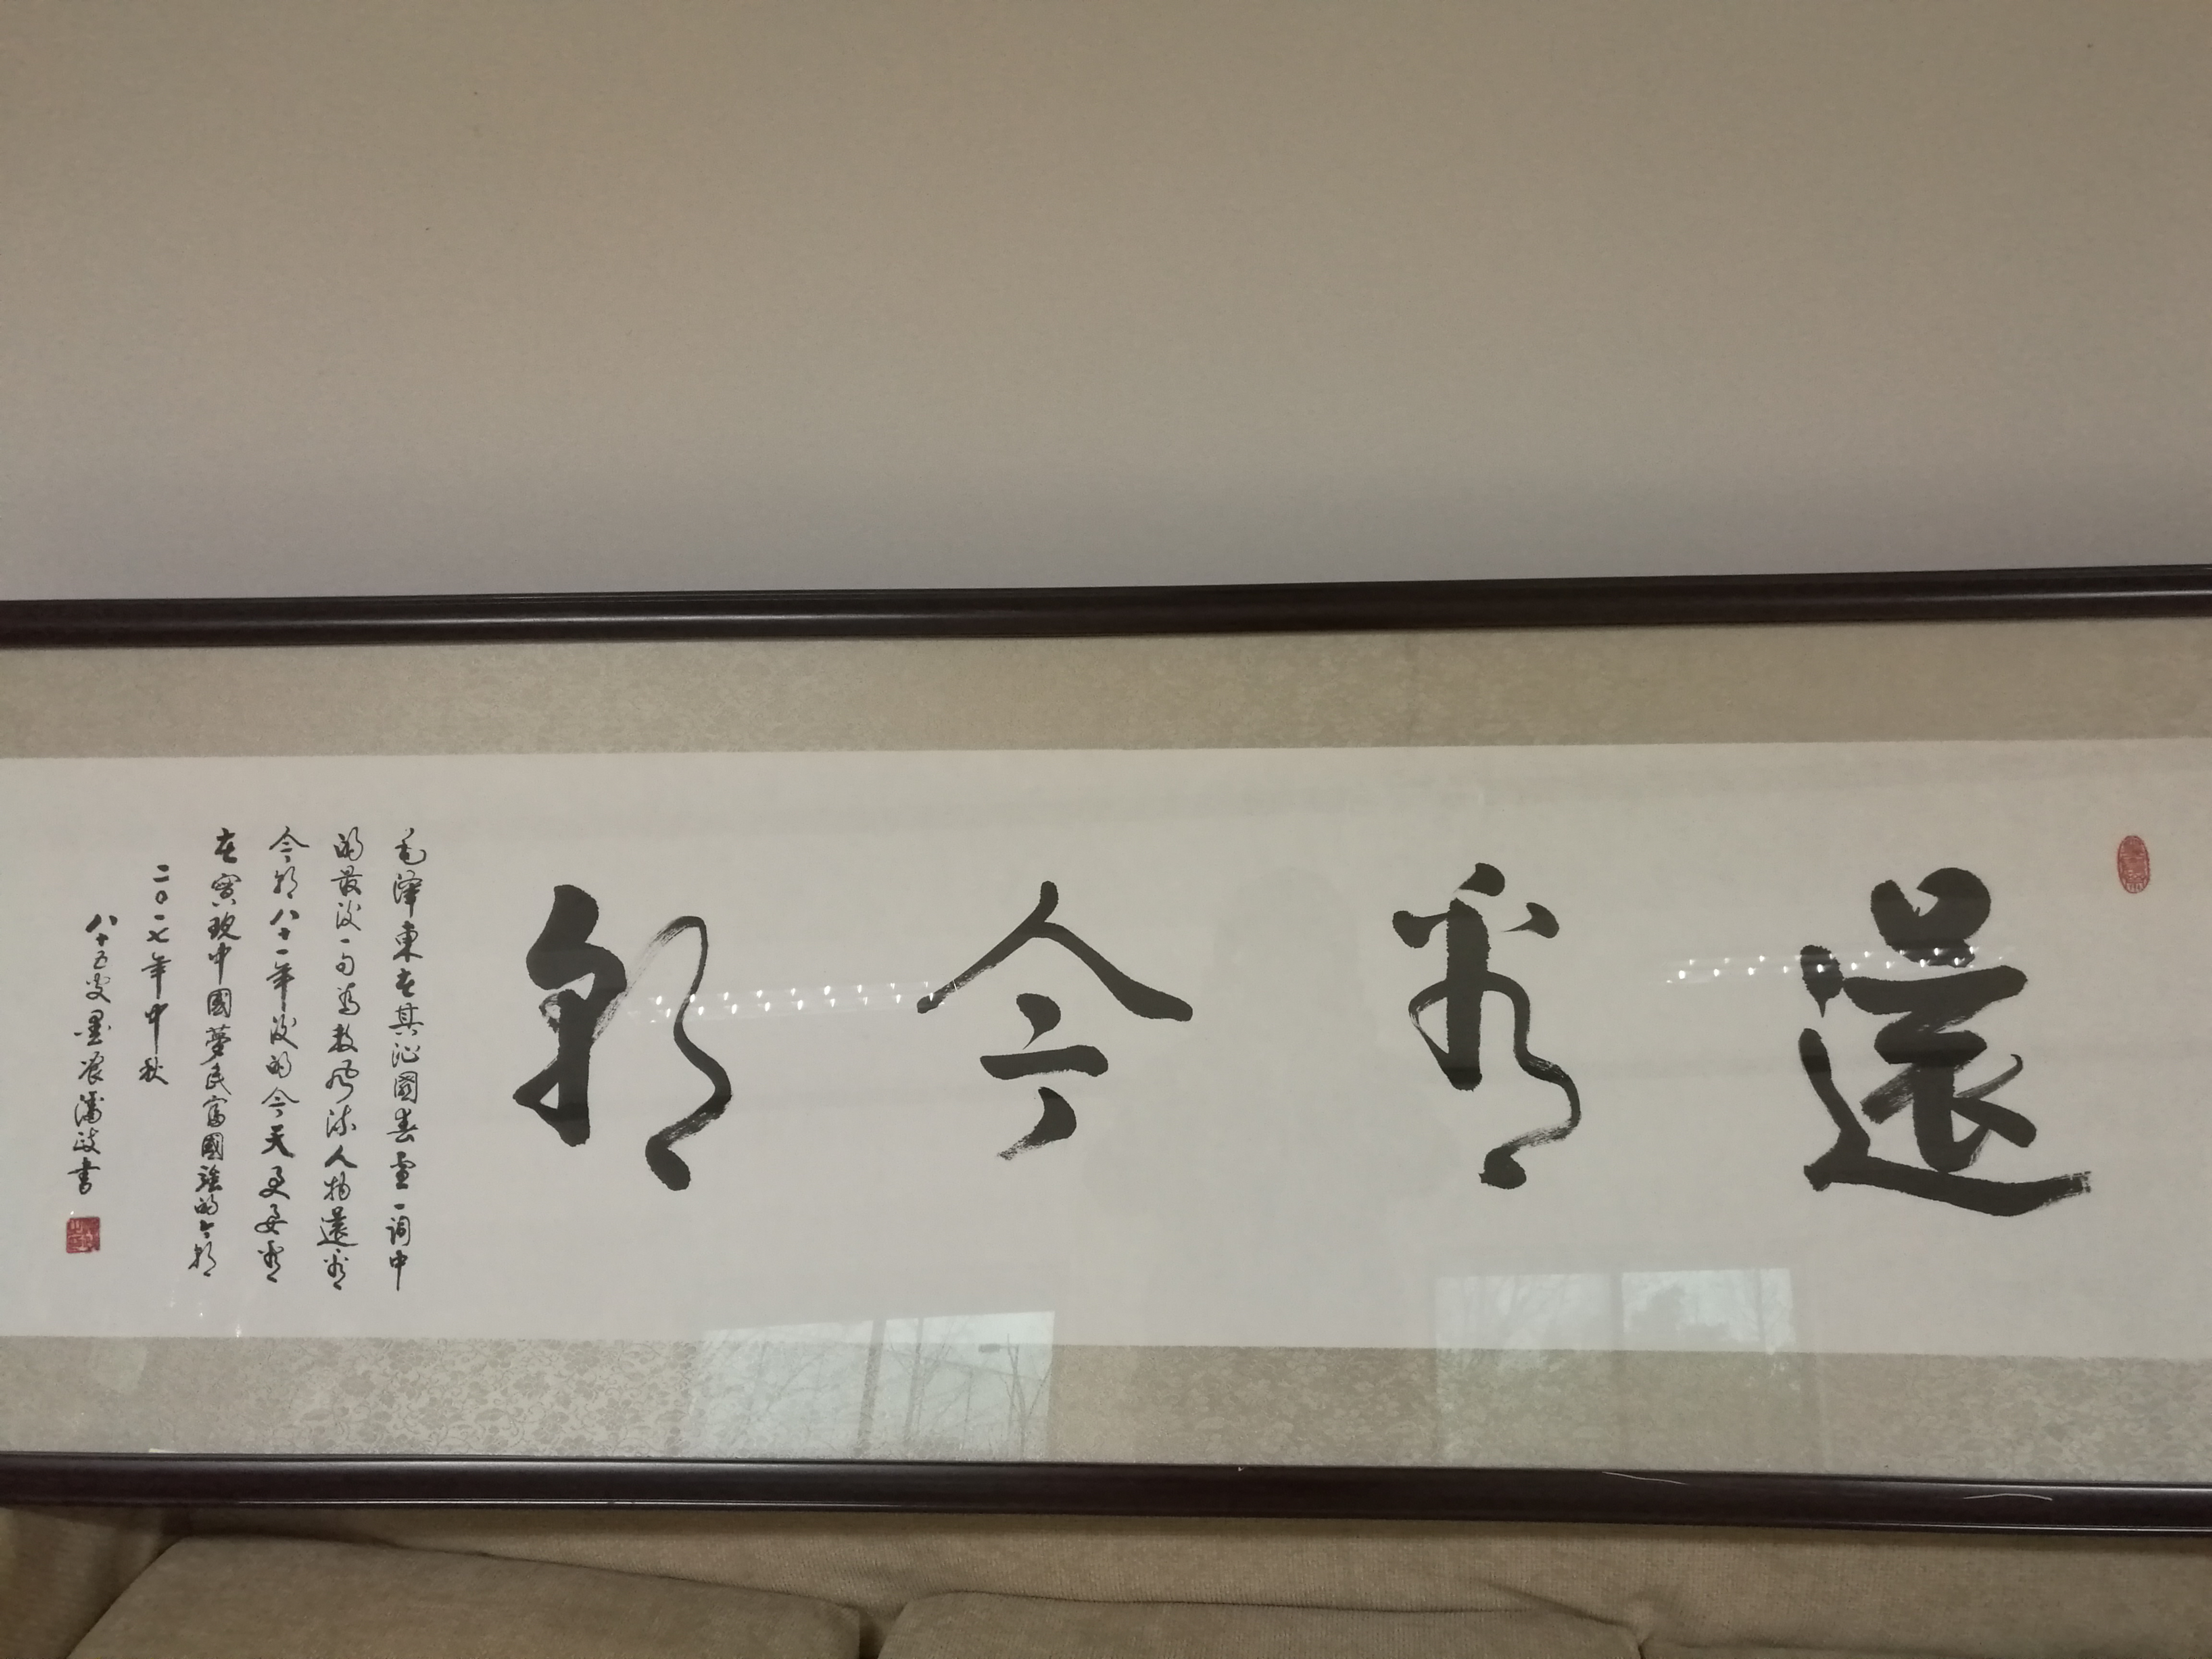 還看今朝
毛澤東在其沁園春雪一詞中
的最后一句為數風流人物還看
今朝八十一年后的今天更要看
在實現中國夢民富國強的今朝
二〇一七年中秋
八十五叟墨農潘政書